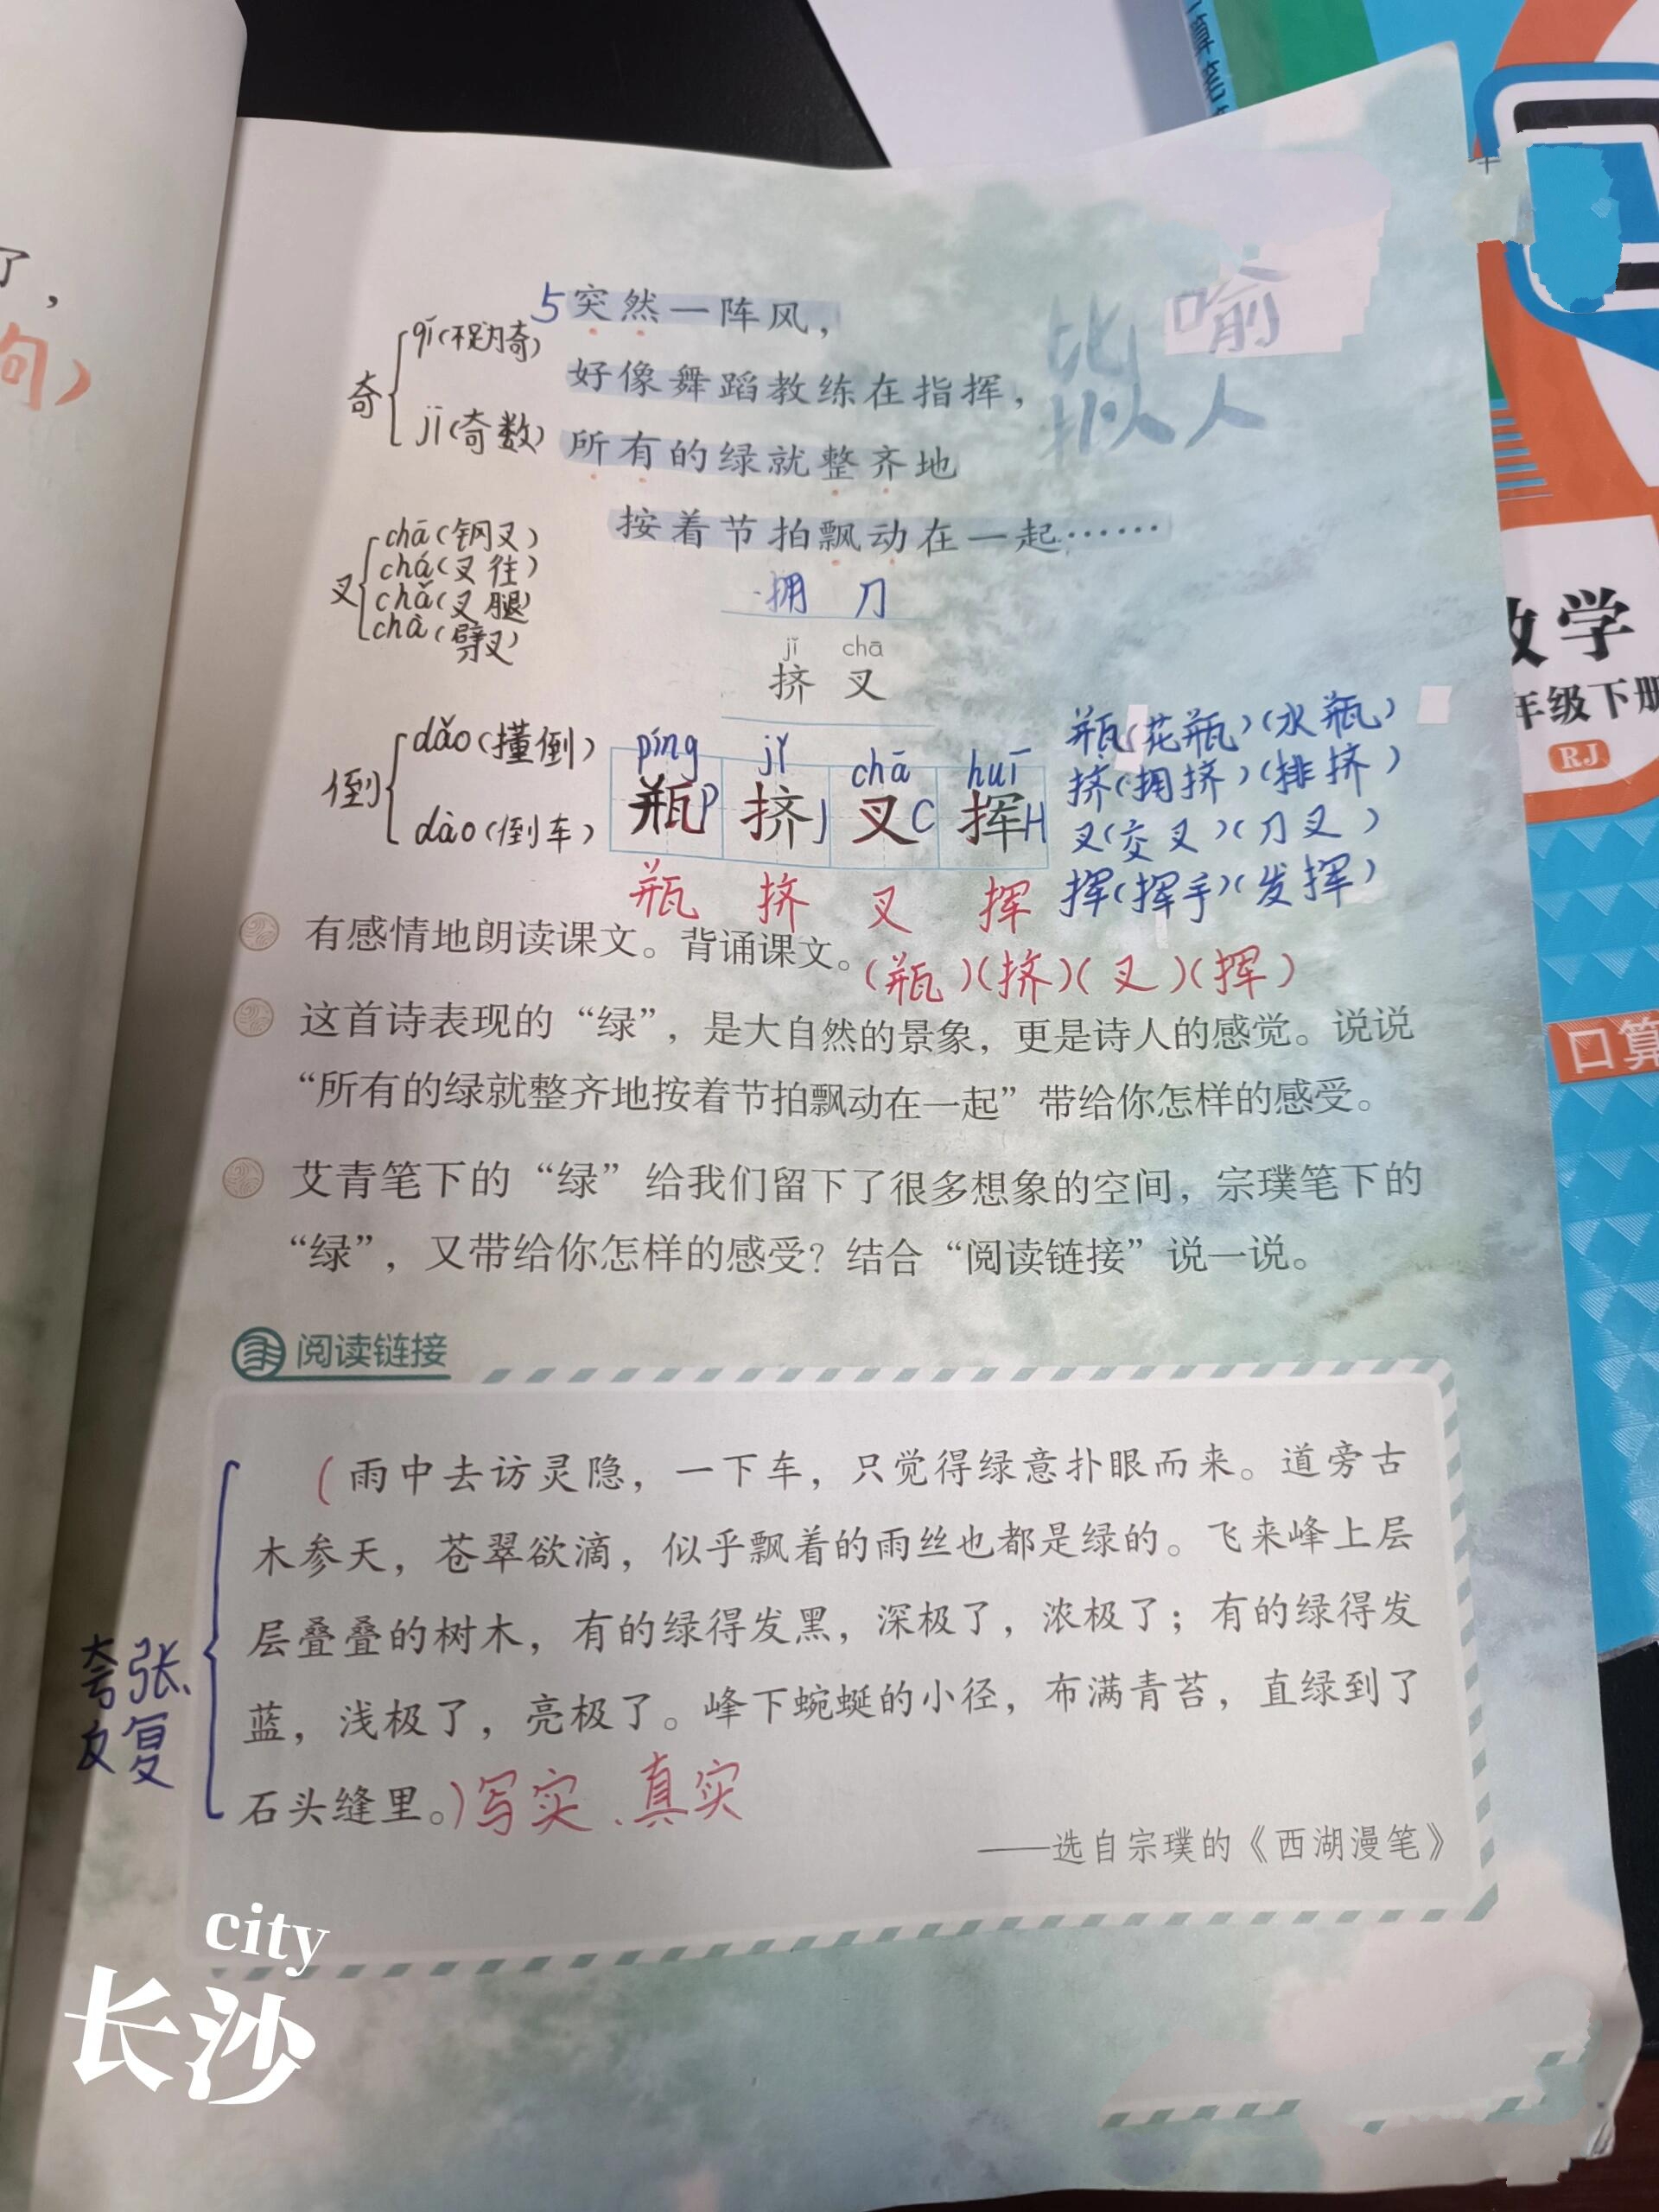 了，
句）
5突然一阵风，
好像舞蹈教练在指挥，
所有的绿就整齐地
按着节拍飘动在一起……
比喻
拟人
奇
qí(不足为奇)
jī(奇数)
叉
chā(钢叉)
chá(叉往)
chǎ(叉腿)
chà(劈叉)
拥 刀
jǐ chā
挤 叉
倒
dǎo(撞倒)
dào(倒车)
píng jǐ chā huī
瓶P 挤J 叉C 挥H
瓶 挤 叉 挥
瓶(花瓶)(水瓶)
挤(拥挤)(排挤)
叉(交叉)(刀叉)
挥(挥手)(发挥)
有感情地朗读课文。背诵课文。
(瓶)(挤)(叉)(挥)
这首诗表现的“绿”，是大自然的景象，更是诗人的感觉。说说
“所有的绿就整齐地按着节拍飘动在一起”带给你怎样的感受。
艾青笔下的“绿”给我们留下了很多想象的空间，宗璞笔下的
“绿”，又带给你怎样的感受？结合“阅读链接”说一说。
阅读链接
(雨中去访灵隐，一下车，只觉得绿意扑眼而来。道旁古
木参天，苍翠欲滴，似乎飘着的雨丝也都是绿的。飞来峰上层
层叠叠的树木，有的绿得发黑，深极了，浓极了；有的绿得发
蓝，浅极了，亮极了。峰下蜿蜒的小径，布满青苔，直绿到了
石头缝里。)写实、真实
夸张、
反复
——选自宗璞的《西湖漫笔》
city
长沙
数学
年级下册
RJ
口算